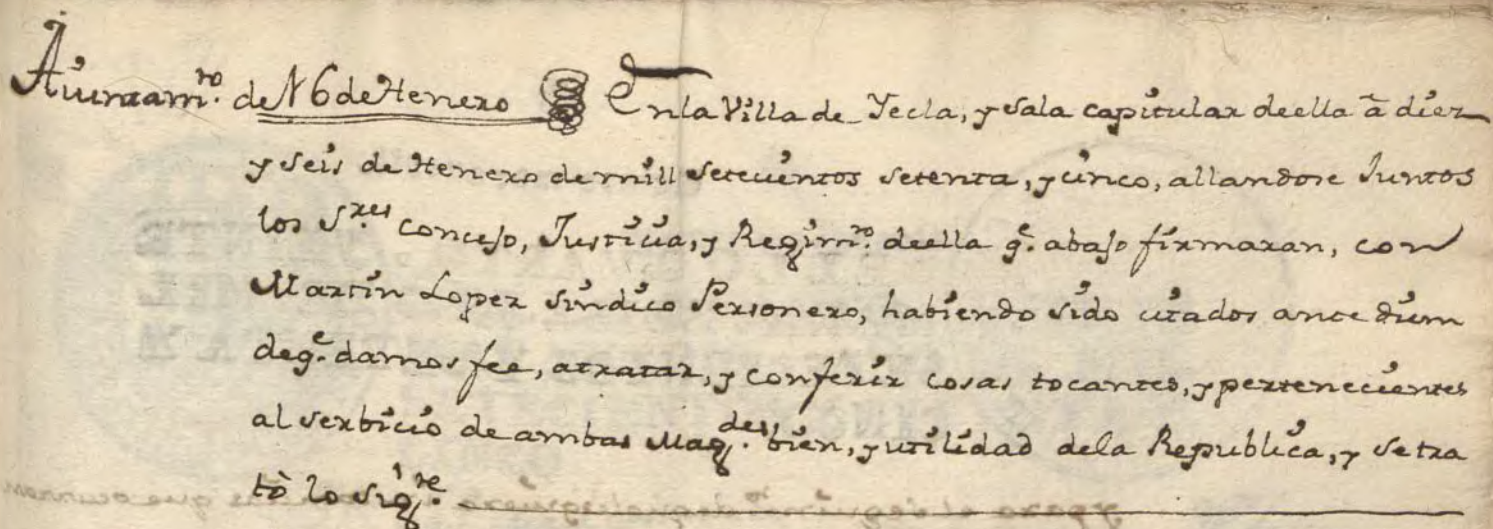 Aiuntam.to de 16 de Henero En la Villa de Yecla, y Sala capitular de ella â diez
y seis de Henero de mill setecientos setenta, y cinco, allandose Juntos
los S.res Concejo, Justicia, y Regim.to de ella q.e abajo firmaran, con
Martin Lopez Sindico Personero, habiendo sido citados ante diem
de q.e damos fee, atratar, y conferir cosas tocantes, y pertenecientes
al serbicio de ambas Mag.des bien, y utilidad de la Republica, y se tra
tò lo sig.te